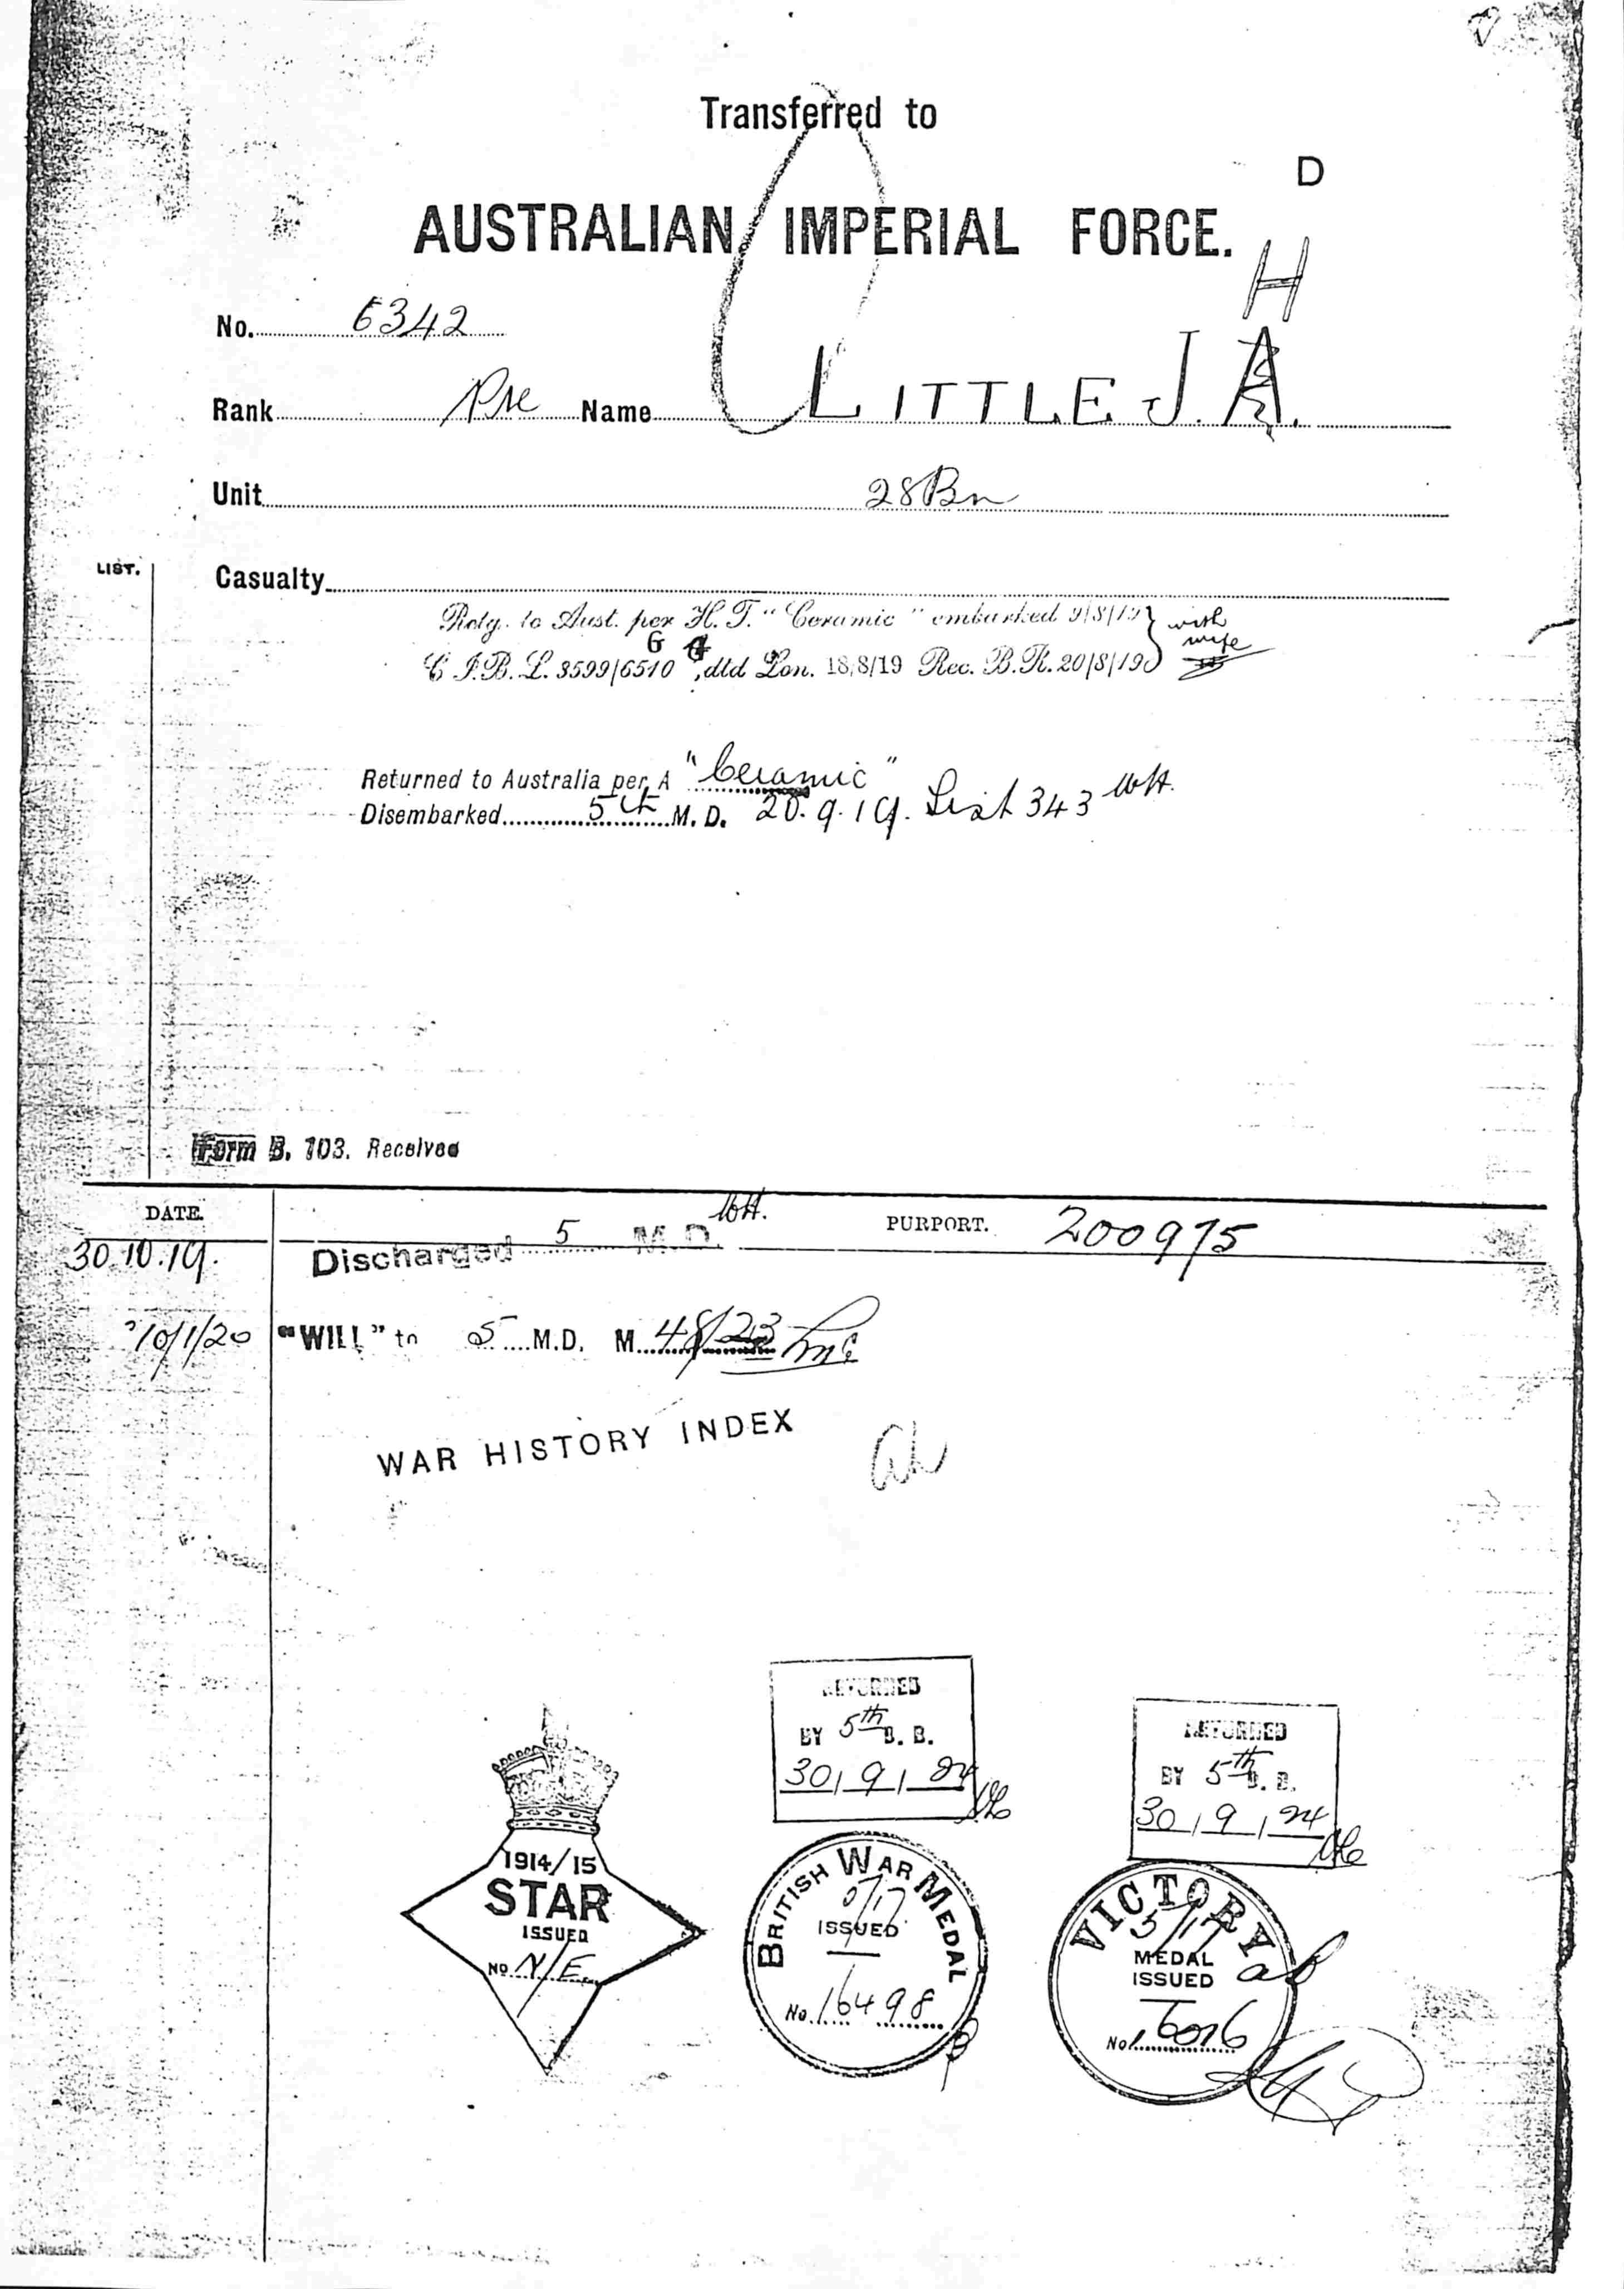 Transferred to
D
AUSTRALIAN IMPERIAL FORCE.
H
No. 6342
Rank Pte Name LITTLE J. A.
Unit 28 Bn
LIST.
Casualty
Retg. to Aust. per H. T. "Ceramic" embarked 9/8/19 } with
wife
C.I.B.L. 3599/6510 G, dtd Lon. 18/8/19 Rec. B.R. 20/8/19
Returned to Australia per A "Ceramic"
Disembarked 5th M. D. 20.9.19. List 343
Form B. 103. Received
DATE. PURPORT. 200975
30.10.19. Discharged 5 M.D.
10/1/20 "WILL" to 5 M.D. M. 48/23
WAR HISTORY INDEX
RETURNED
BY 5th B. B.
30/9/24
RETURNED
BY 5th B. B.
30/9/24
1914/15
STAR
ISSUED
No N/E.
BRITISH WAR MEDAL
ISSUED
No. 16498
VICTORY
5/17
MEDAL
ISSUED
No. 16016